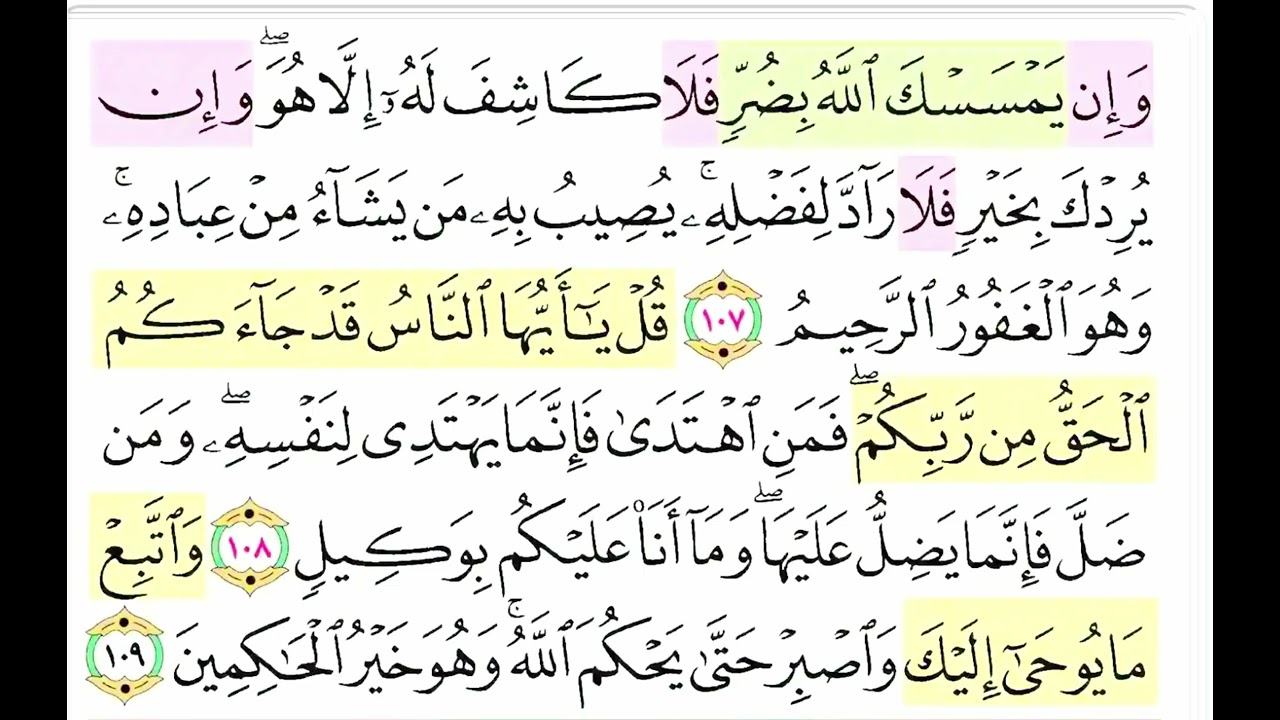 وَإِن يَمْسَسْكَ ٱللَّهُ بِضُرٍّ فَلَا كَاشِفَ لَهُۥٓ إِلَّا هُوَ ۖ وَإِن
يُرِدْكَ بِخَيْرٍ فَلَا رَآدَّ لِفَضْلِهِۦ ۚ يُصِيبُ بِهِۦ مَن يَشَآءُ مِنْ عِبَادِهِۦ ۚ
وَهُوَ ٱلْغَفُورُ ٱلرَّحِيمُ ١٠٧ قُلْ يَـٰٓأَيُّهَا ٱلنَّاسُ قَدْ جَآءَكُمُ
ٱلْحَقُّ مِن رَّبِّكُمْ ۖ فَمَنِ ٱهْتَدَىٰ فَإِنَّمَا يَهْتَدِى لِنَفْسِهِۦ ۖ وَمَن
ضَلَّ فَإِنَّمَا يَضِلُّ عَلَيْهَا ۖ وَمَآ أَنَا۠ عَلَيْكُم بِوَكِيلٍ ١٠٨ وَٱتَّبِعْ
مَا يُوحَىٰٓ إِلَيْكَ وَٱصْبِرْ حَتَّىٰ يَحْكُمَ ٱللَّهُ ۚ وَهُوَ خَيْرُ ٱلْحَـٰكِمِينَ ١٠٩